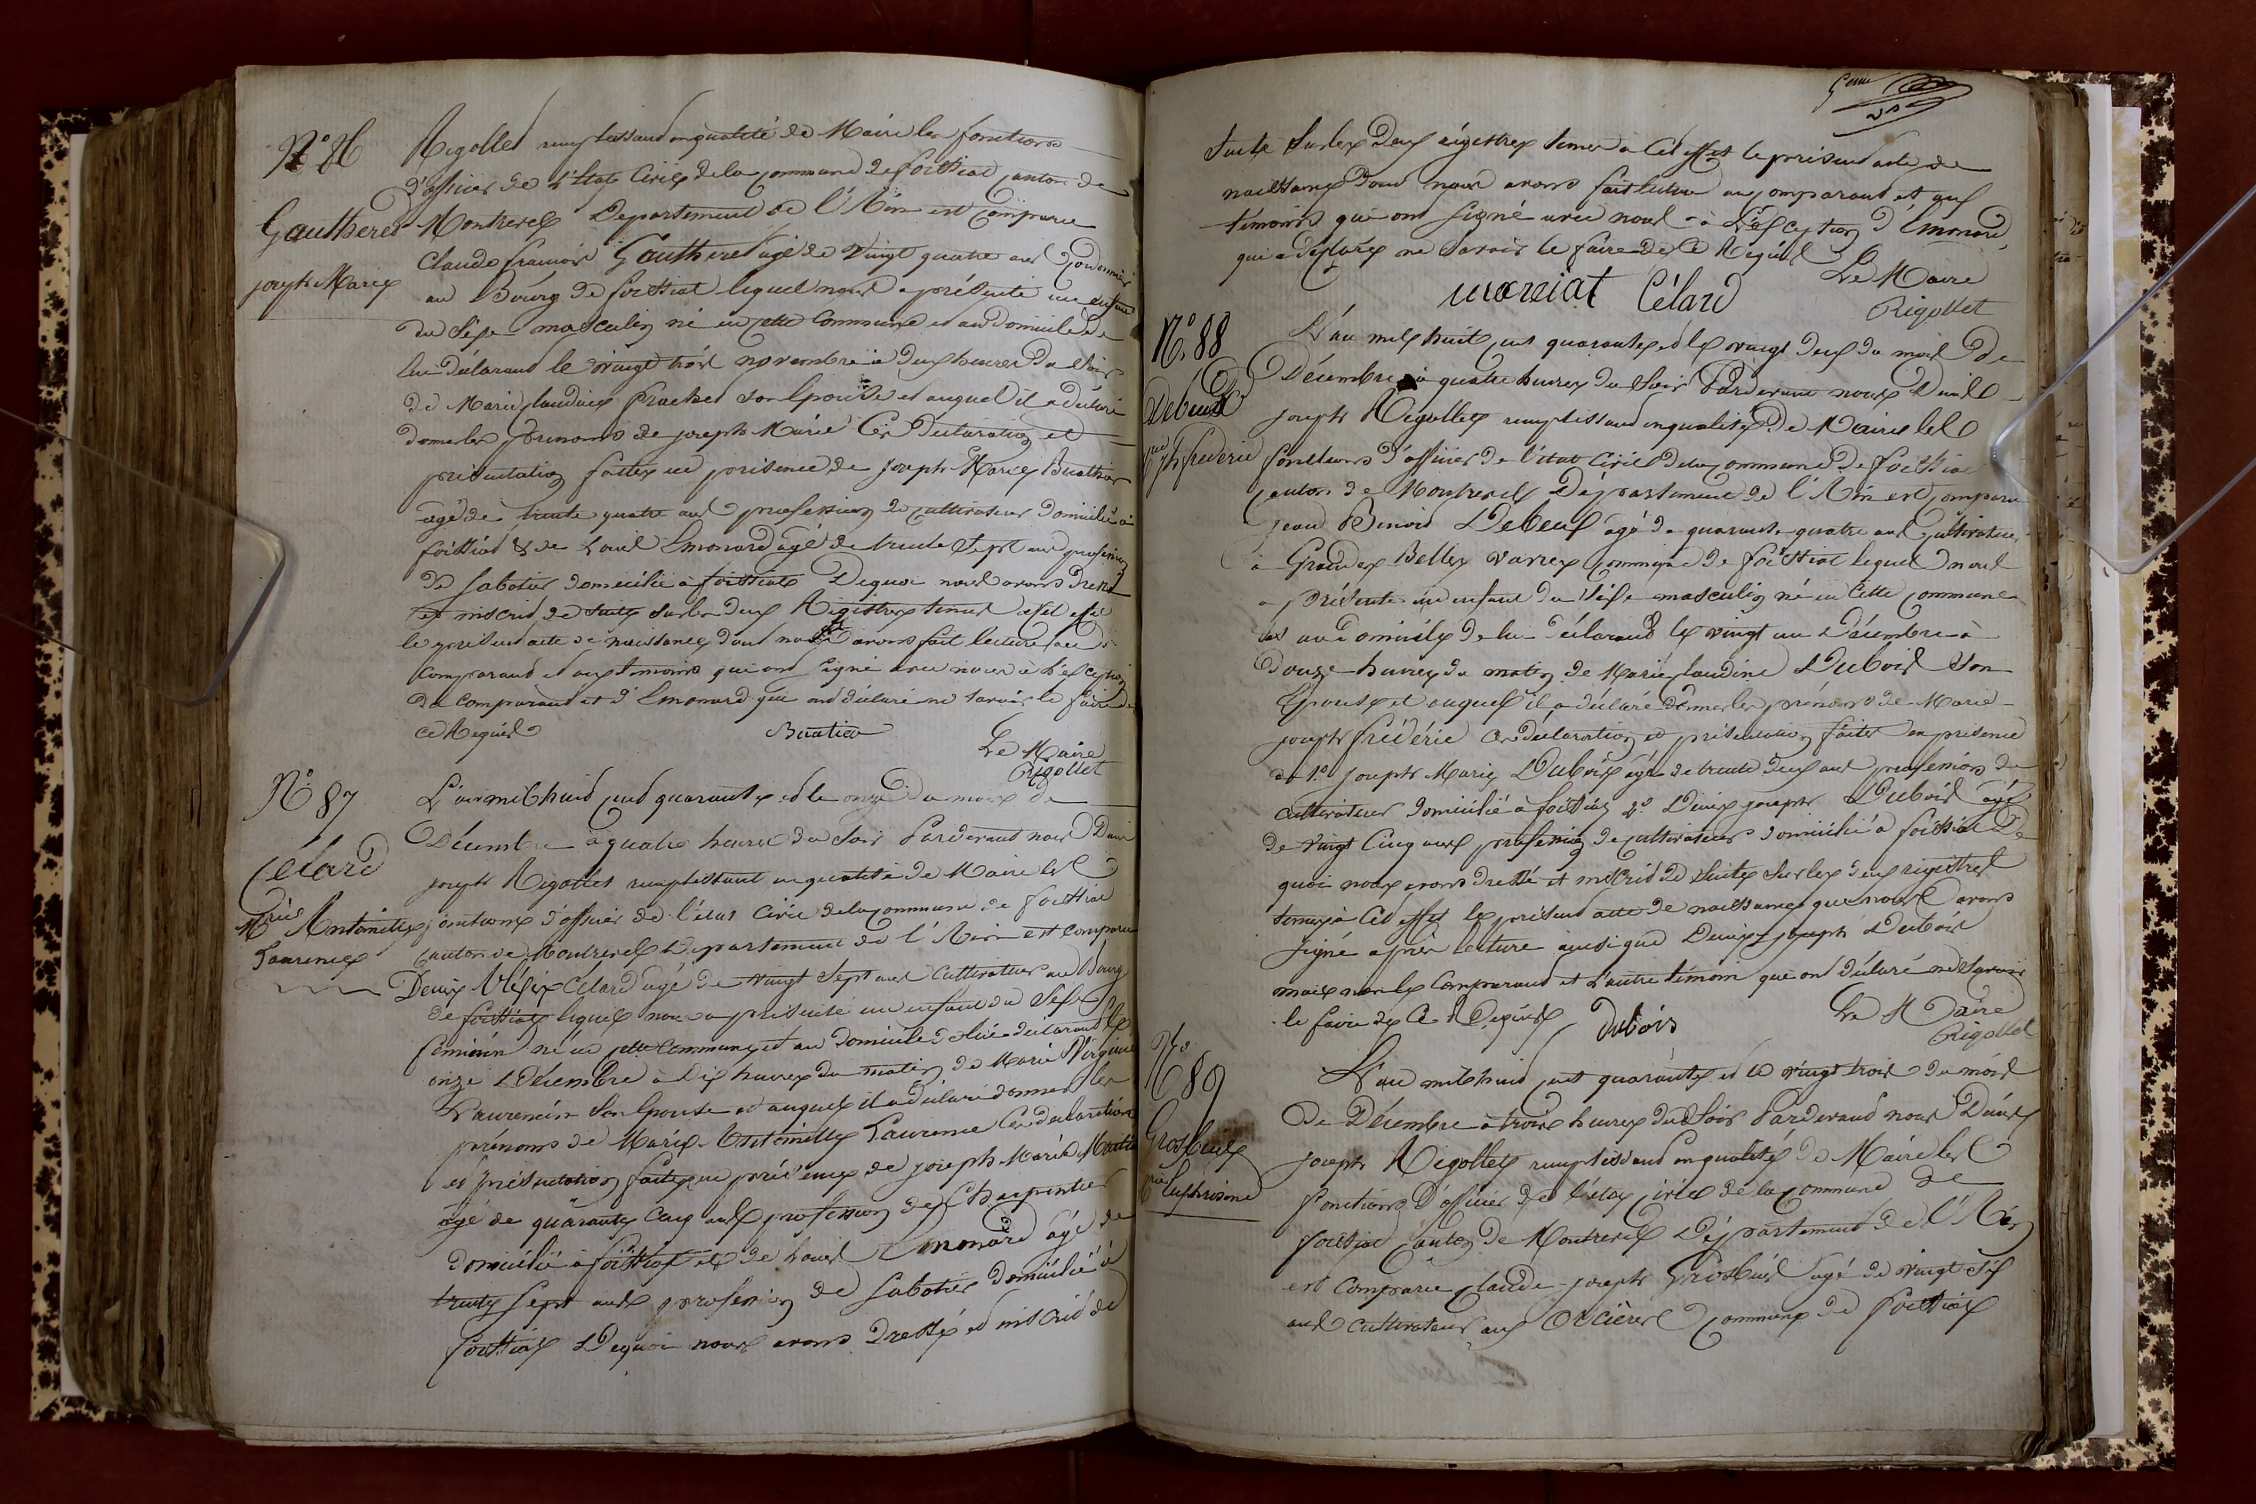 N° 86
Gautheret
joseph Marie
Rigollet remplissant en qualité de Maire les fonctions
d'officier de l'état Civil de la commune de foissiat canton de
Montrevel Departement de l'Ain est comparu
Claude francois Gautheret agé de vingt quatre ans Cordonnier
au Bourg de foissiat lequel nous a présenté un enfant
du séxe masculin né en cette Commune et au domicile de
lui déclarant le vingt trois novembre à deux heures du soir
de Marie claudine son épouse et auquel il a déclaré
donner les prénoms de joseph Marie Ces déclaration et
présentation faites en présence de joseph Marie Buathier
agé de trente quatre ans profession de cultivateur domicilié à
foissiat & de Louis Emonard agé de trente sept ans profession
de sabotier domicilié à foissiat Dequoi nous avons dressé
et inscrit de suite sur les deux Registres tenus à cet effet
le présent acte de naissance dont nous avons fait lecture au
comparant et aux témoins qui ont signé avec nous à l'exception
du comparant et d'Emonard qui ont déclaré ne savoir le faire de
ce Requis
Buatier
Le Maire
Rigollet
N° 87
Célard
Mrie Antoinette
Laurence
L'an mil huit cent quarante et le onze du mois de
Décembre à quatre heures du soir Pardevant nous Denis
joseph Rigollet remplissant en qualité de Maire les
fonctions d'officier de l'état Civil de la commune de foissiat
canton de Montrevel Département de l'Ain est comparu
Denis Célard agé de vingt sept ans Cultivateur au Bourg
de foissiat lequel nous a présenté un enfant du séxe
féminin né en cette Commune et au domicile de lui déclarant le
onze Décembre à dix heures du matin de Marie Virginie
Laurencin son épouse et auquel il a déclaré donner les
prénoms de Marie Antoinette Laurence Ces déclaration
et présentation faites en présence de joseph Marie
agé de quarante cinq ans profession de Charpentier
domicilié à foissiat et de Louis Emonard agé de
trente sept ans profession de sabotier domicilié à
foissiat Dequoi nous avons dressé et inscrit de
suite sur les deux régistres tenus à cet effet le présent acte de
naissance dont nous avons fait lecture au comparant et aux
témoins qui ont signé avec nous à l'exception d'Emonard
qui a déclaré ne savoir le faire de ce Requis
Le Maire
moreiat Célard
Rigollet
N°. 88
Debeuf
jph fréderic
L'an mil huit cent quarante et le vingt deux du mois de
Décembre à quatre heures du soir Pardevant nous Denis
joseph Rigollet remplissant en qualité de Maire les
fonctions d'officier de l'état Civil de la commune de foissiat
canton de Montrevel Département de l'Ain est comparu
jean Benoit Debeuf agé de quarante quatre ans Cultivateur
à Grandes Belles varres commune de foissiat lequel nous
a présenté un enfant du séxe masculin né en cette commune
au domicile de lui déclarant le vingt un Décembre à
douze heures du matin de Marie claudine Dubois son
épouse et auquel il a déclaré donner les prénoms de Marie
joseph frédéric Ces déclaration et présentation faites en présence
de 1° joseph Marie Dubois agé de trente deux ans profession de
cultivateur domicilié à foissiat 2° Denis joseph Dubois agé
de vingt cinq ans profession de cultivateur domicilié à foissiat De
quoi nous avons dressé et inscrit de suite sur les deux régistres
tenus à cet effet le présent acte de naissance que nous avons
signé après lecture ainsi que Denis joseph Dubois
mais non le comparant et l'autre témoin qui ont déclaré ne savoir
le faire de ce Requis
Dubois
Le Maire
Rigollet
N° 89
Grosbuis
Euphrosine
L'an mil huit cent quarante et le vingt trois du mois
de Décembre à trois heures du soir Pardevant nous Denis
joseph Rigollet remplissant en qualité de Maire les
fonctions d'officier de l'état civil de la commune de
foissiat canton de Montrevel Département de l'Ain
est comparu claude joseph Grosbuis agé de vingt six
ans cultivateur aux Orcières commune de foissiat